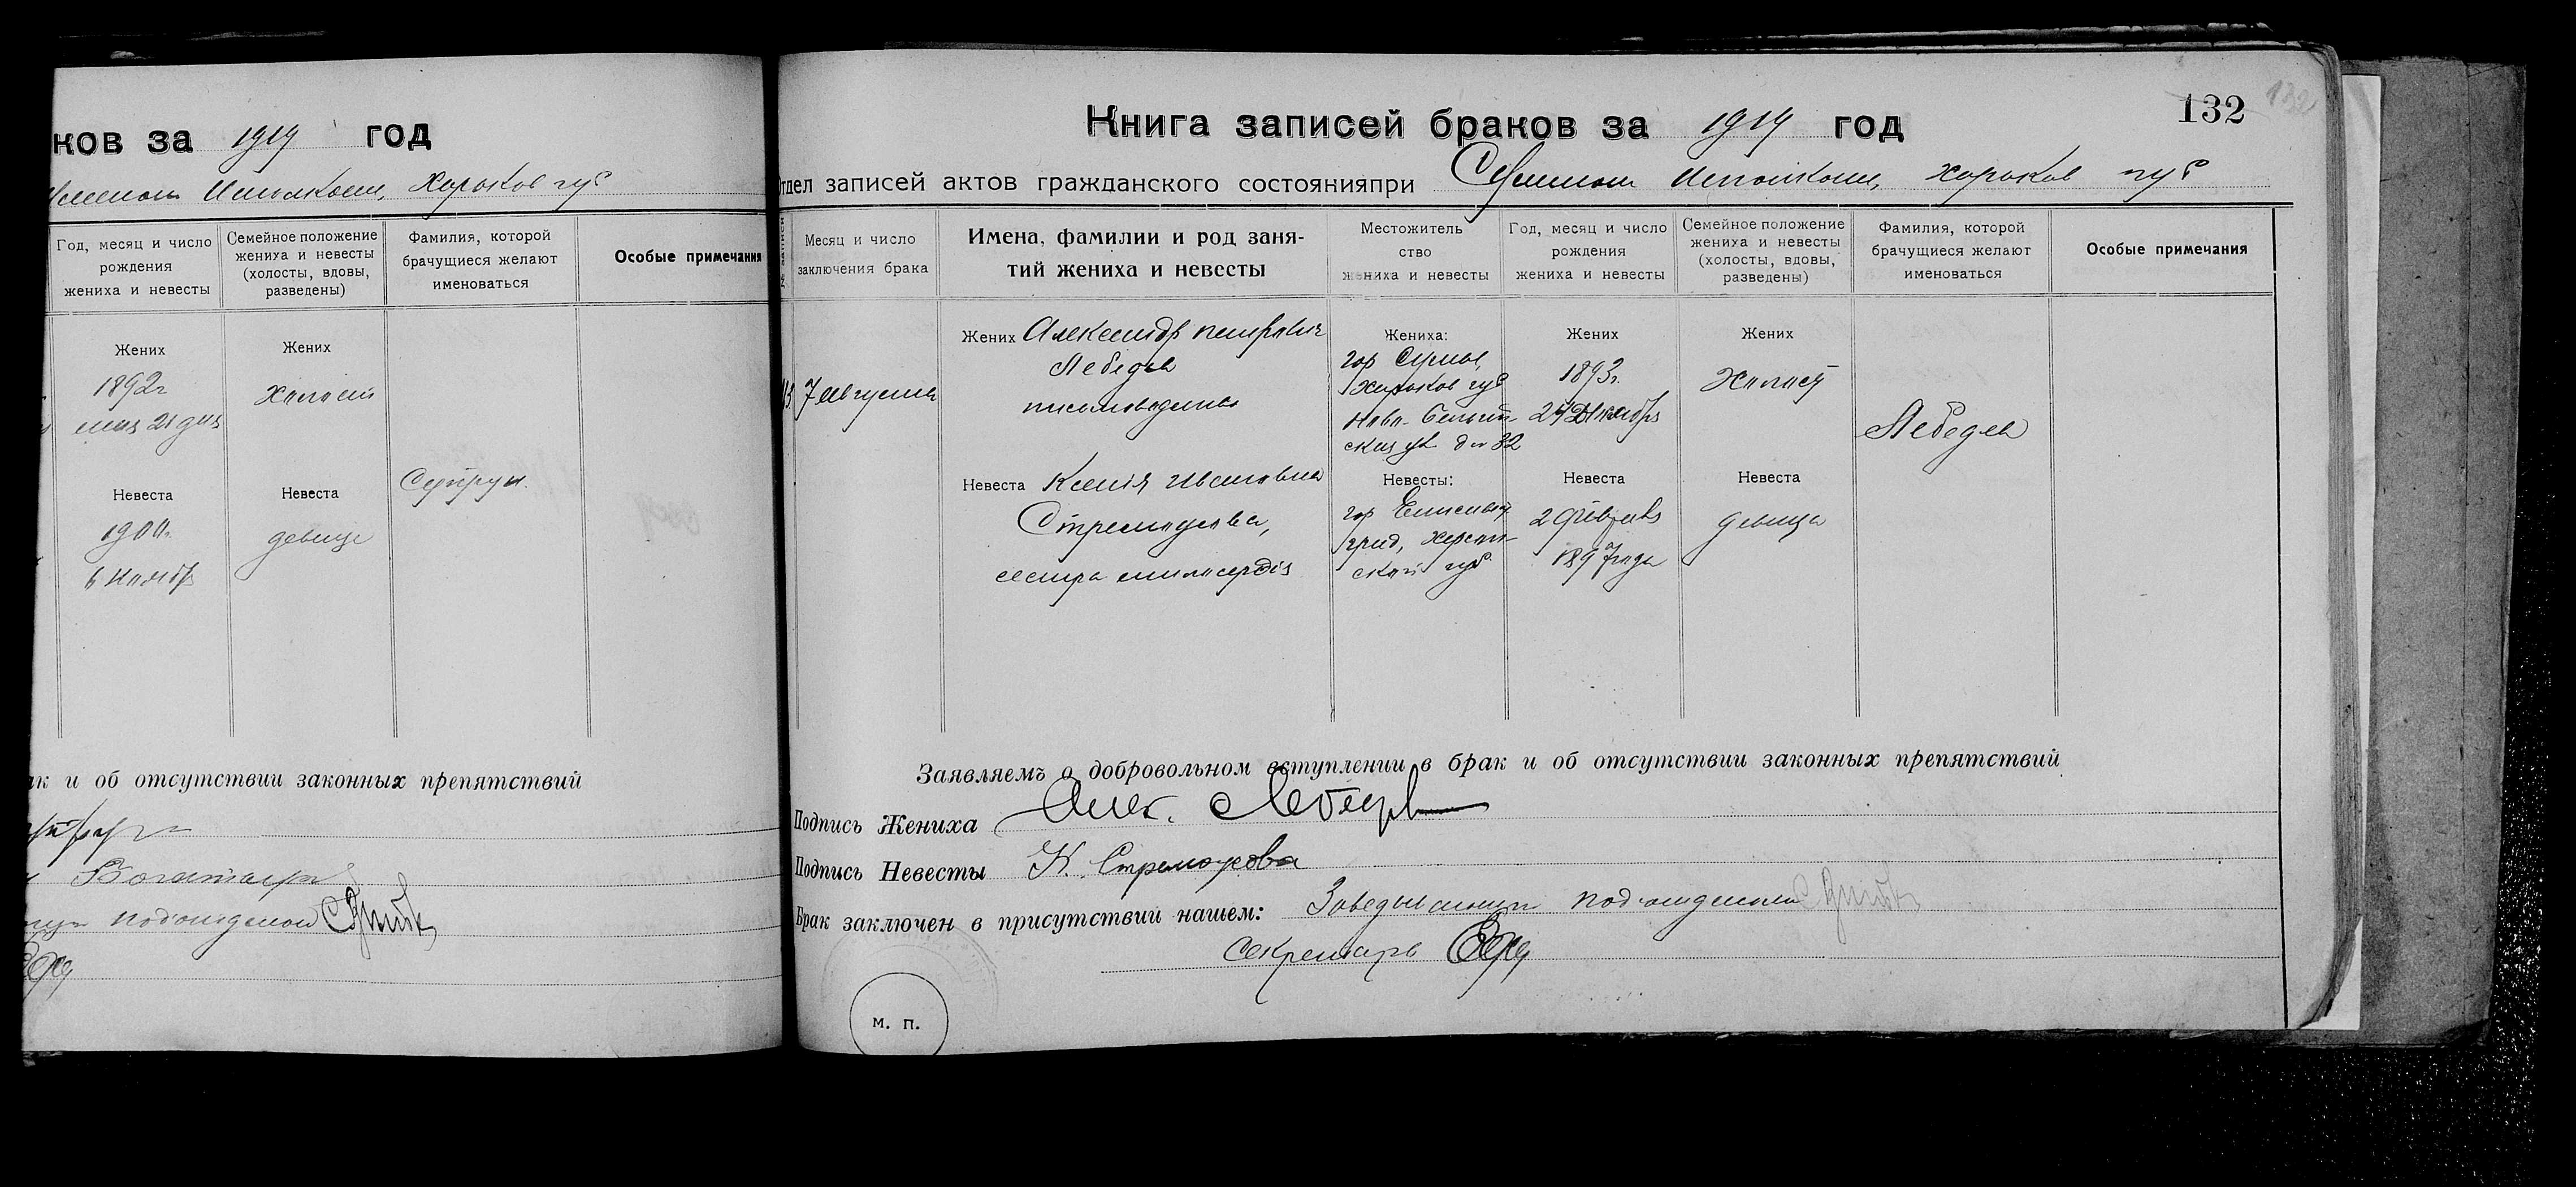 ков за 1919 год
Исполкоме, Харьков губ
Год, месяц и число рождения жениха и невесты
Семейное положение жениха и невесты (холосты, вдовы, разведены)
Фамилия, которой брачущиеся желают именоваться
Особые примечания
Жених
Жених
1892г
холост
21 дня
Супрун
Невеста
Невеста
1900г.
девица
6 Ноября
ак и об отсутствии законных препятствий
132
132
Книга записей браков за 1919 год
тдел записей актов гражданского состоянияпри Сумском Исполкоме, Харьков губ
№ записи
Месяц и число заключения брака
Имена, фамилии и род занятий жениха и невесты
Местожительство жениха и невесты
Год, месяц и число рождения жениха и невесты
Семейное положение жениха и невесты (холосты, вдовы, разведены)
Фамилия, которой брачущиеся желают именоваться
Особые примечания
7 Августа
Жених Александр Петрович
Лебедев
письмоводитель
Жениха:
гор Сумы,
Харьков губ
32
Жених
1893г.
Жених
Холост
Лебедев
Невеста Ксенія Ивановна
Стремоухова,
сестра милосердія
Невесты:
гор Елисавет
град, Херсон-
ской губ.
Невеста
2
1897 года
Невеста
девица
Заявляемъ о добровольном вступлении в брак и об отсутствии законных препятствий
Подпись Жениха Алек. Лебедев
Подпись Невесты К. Стремоухова
Брак заключен в присутствии нашем: Заведывающий подотделом
Секретарь
м. п.